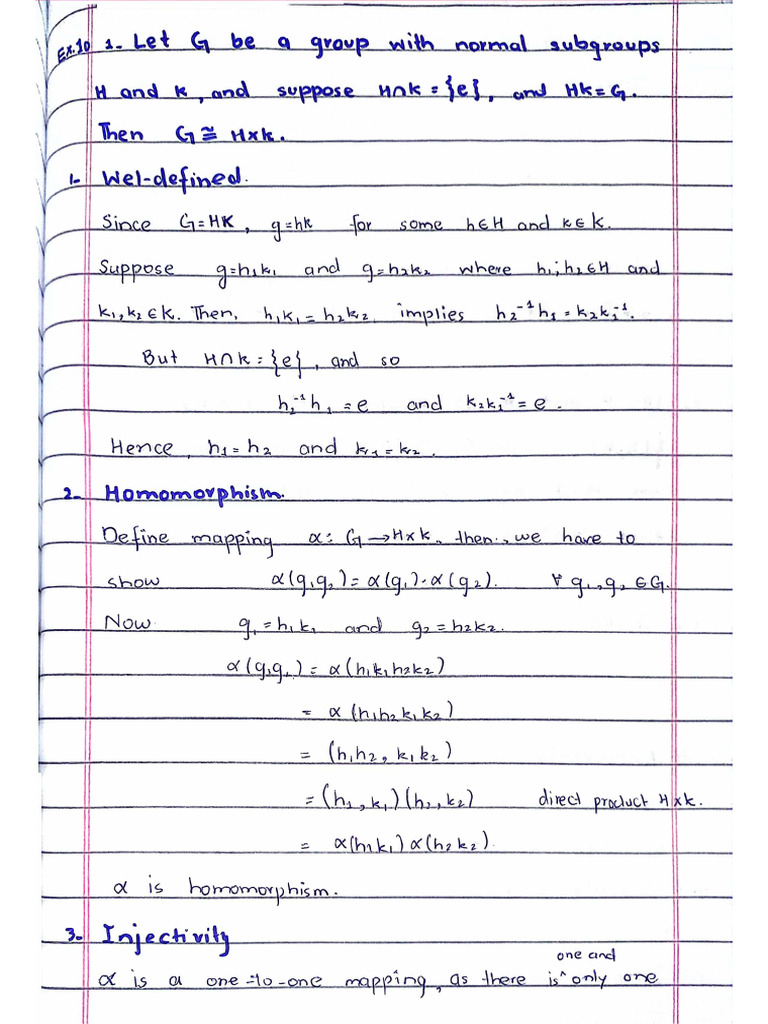 Ex.10 1- Let G be a group with normal subgroups
H and K, and suppose H∩K = {e}, and HK = G.
Then G ≅ H×K.
1- Wel-defined.
Since G=HK, g=hk for some h∈H and k∈K.
Suppose g=h₁k₁ and g=h₂k₂ where h₁,h₂∈H and
k₁,k₂∈K. Then, h₁k₁=h₂k₂ implies h₂⁻¹h₁=k₂k₁⁻¹.
But H∩K={e}, and so
h₂⁻¹h₁ = e and k₂k₁⁻¹ = e.
Hence, h₁=h₂ and k₁=k₂.
2- Homomorphism.
Define mapping α: G→H×K, then, we have to
show α(g₁g₂)=α(g₁)·α(g₂). ∀ g₁,g₂∈G.
Now g₁=h₁k₁ and g₂=h₂k₂.
α(g₁g₂) = α(h₁k₁h₂k₂)
= α(h₁h₂k₁k₂)
= (h₁h₂, k₁k₂)
= (h₁,k₁)(h₂,k₂) direct product H×K.
= α(h₁k₁)α(h₂k₂).
α is homomorphism.
3- Injectivity
α is a one-to-one mapping, as there is ^one and only one